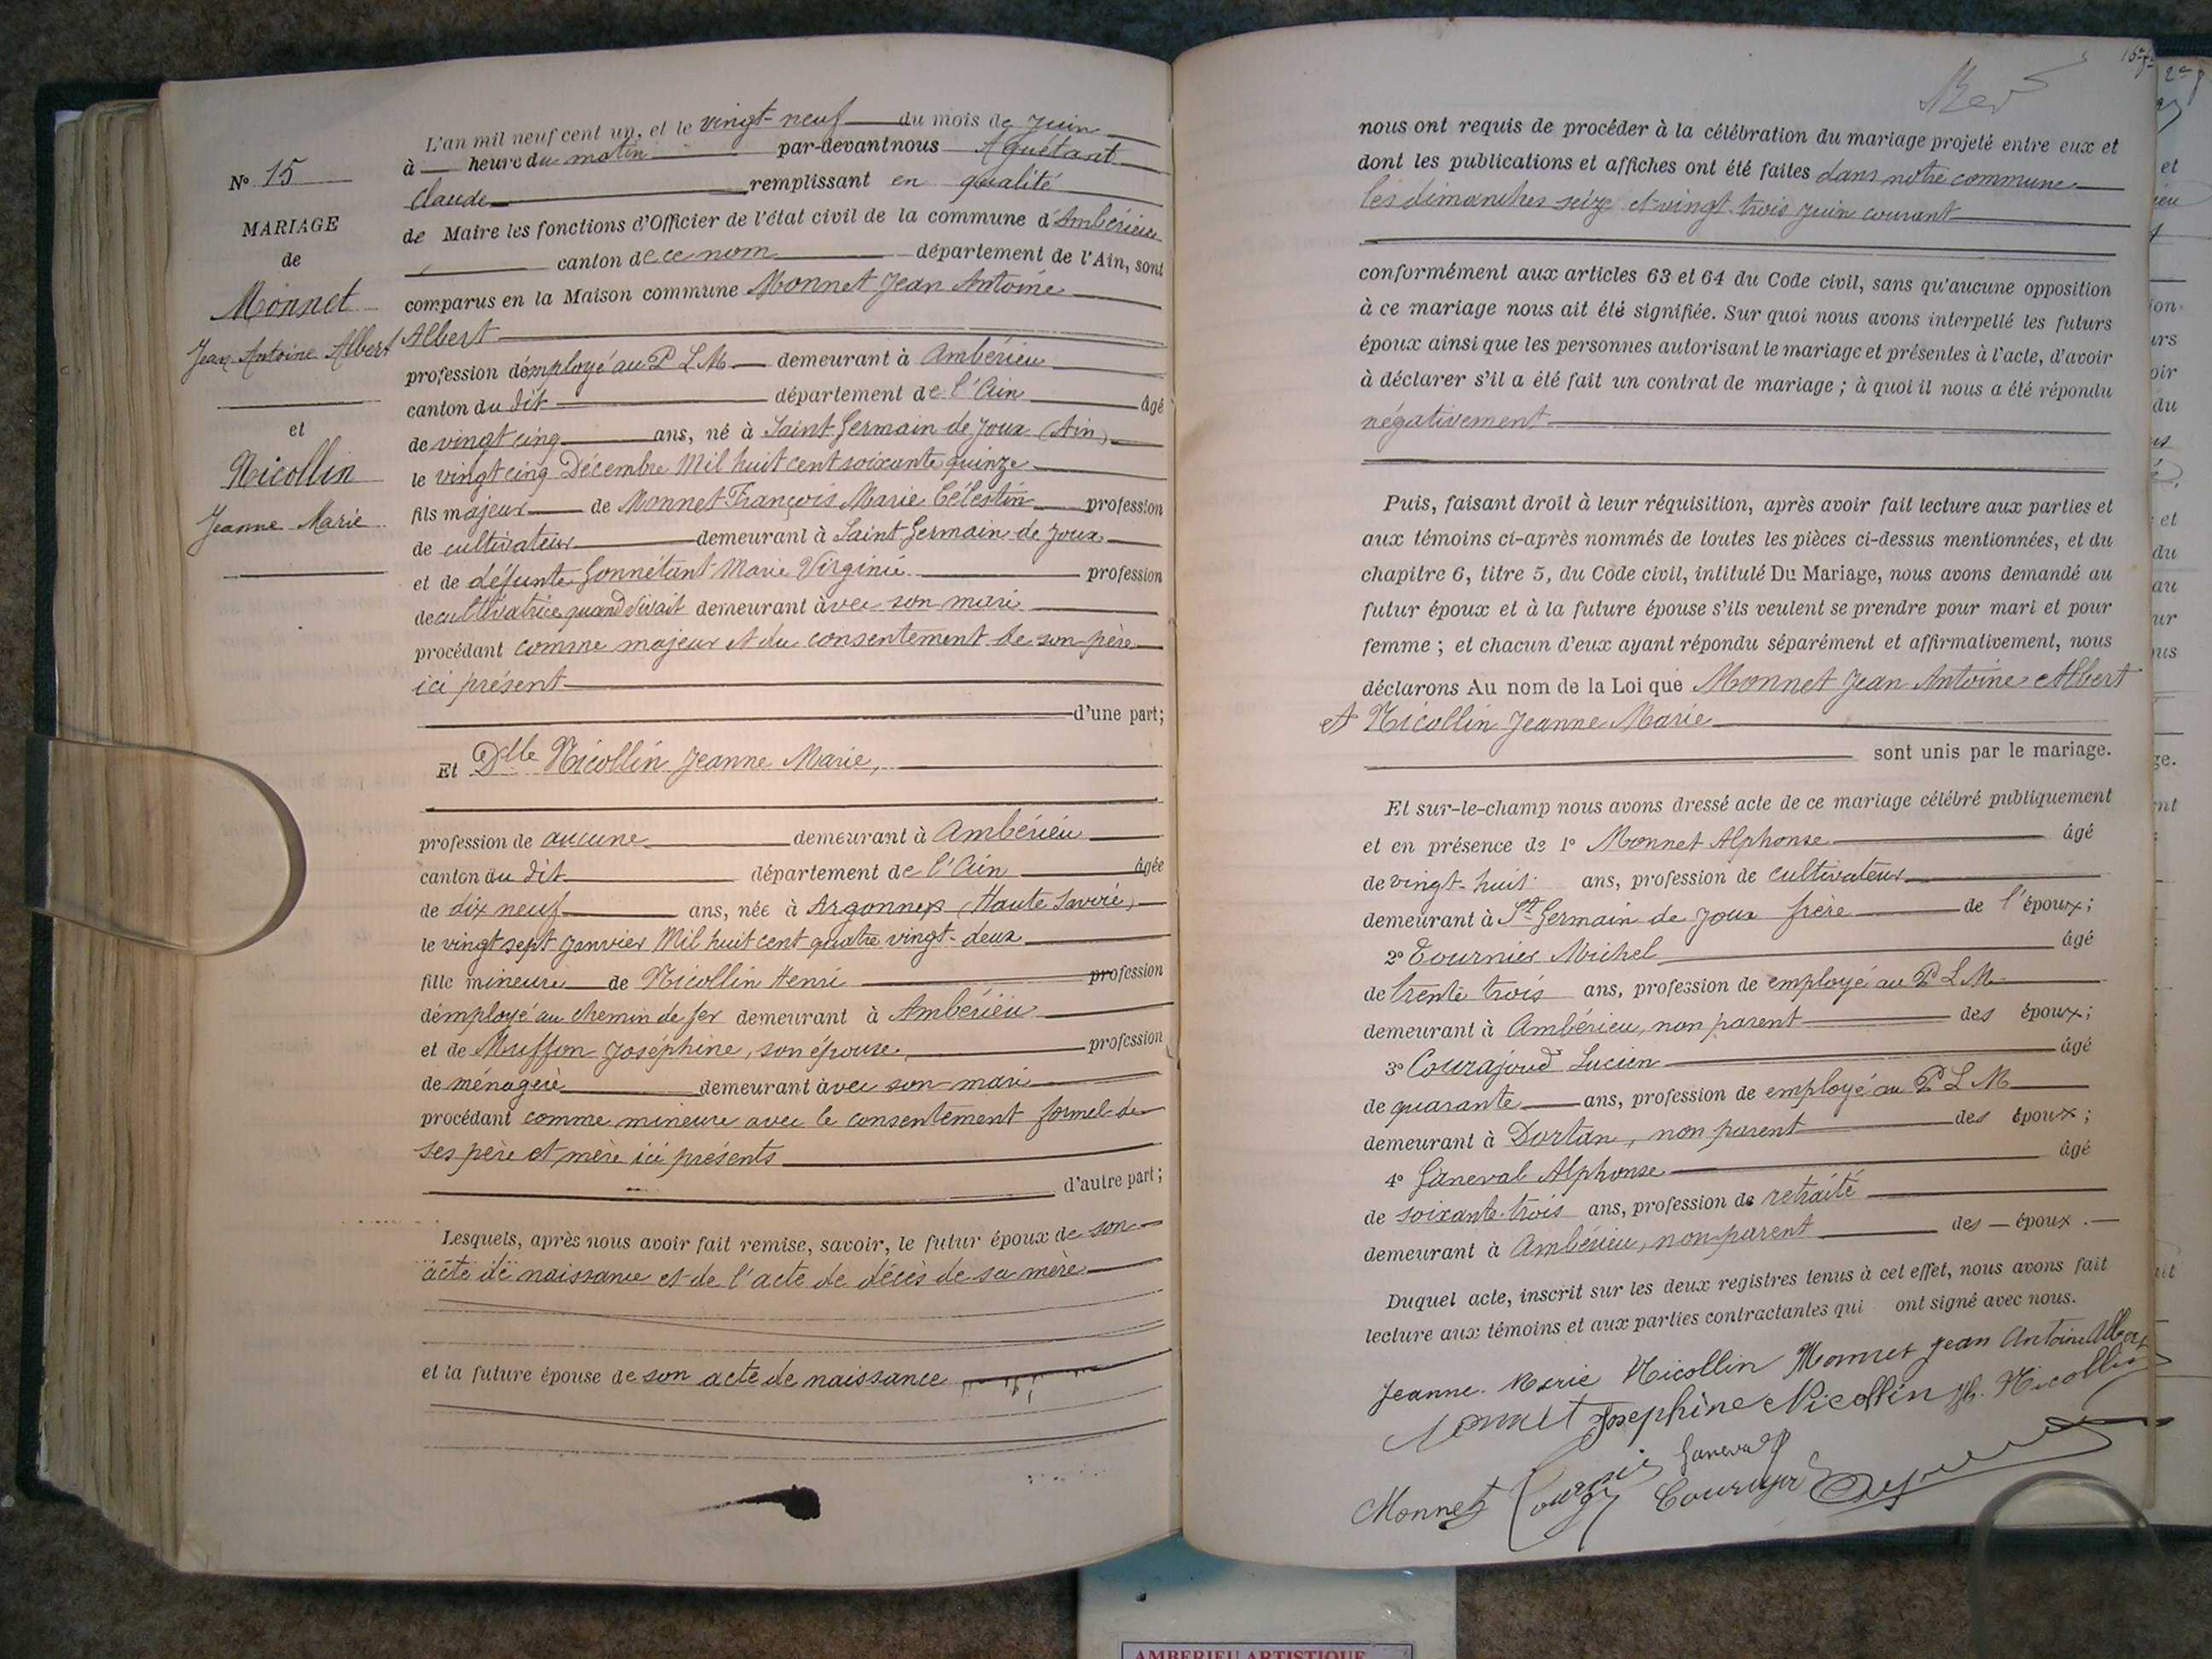 N° 15
MARIAGE
de
Monnet
Jean Antoine Albert
et
Nicollin
Jeanne Marie
L'an mil neuf cent un, et le vingt-neuf du mois de Juin
à heure du matin par-devant nous Aguétant
Claude remplissant en qualité
de Maire les fonctions d'Officier de l'état civil de la commune d'Ambérieu
canton de ce nom département de l'Ain, sont
comparus en la Maison commune Monnet Jean Antoine
Albert
profession d'employé au P L M demeurant à Ambérieu
canton du dit département de l'Ain âgé
de vingt cinq ans, né à Saint Germain de Joux (Ain)
le vingt cinq Décembre Mil huit cent soixante quinze
fils majeur de Monnet François Marie Célestin profession
de cultivateur demeurant à Saint Germain de Joux
et de défunte Gonnétant Marie Virginie profession
de cultivatrice quand vivait demeurant avec son mari
procédant comme majeur et du consentement de son père
ici présent
d'une part;
Et Dlle Nicollin Jeanne Marie,
profession de aucune demeurant à Ambérieu
canton du dit département de l'Ain âgée
de dix neuf ans, née à Argonnex (Haute Savoie)
le vingt sept Janvier Mil huit cent quatre vingt-deux
fille mineure de Nicollin Henri profession
d'employé au chemin de fer demeurant à Ambérieu
et de Muffon Joséphine, son épouse, profession
de ménagère demeurant avec son mari
procédant comme mineure avec le consentement formel de
ses père et mère ici présents
d'autre part;
Lesquels, après nous avoir fait remise, savoir, le futur époux de son
acte de naissance et de l'acte de décès de sa mère
et la future épouse de son acte de naissance
nous ont requis de procéder à la célébration du mariage projeté entre eux et
dont les publications et affiches ont été faites dans notre commune
les dimanches seize et vingt-trois Juin courant
conformément aux articles 63 et 64 du Code civil, sans qu'aucune opposition
à ce mariage nous ait été signifiée. Sur quoi nous avons interpellé les futurs
époux ainsi que les personnes autorisant le mariage et présentes à l'acte, d'avoir
à déclarer s'il a été fait un contrat de mariage ; à quoi il nous a été répondu
négativement
Puis, faisant droit à leur réquisition, après avoir fait lecture aux parties et
aux témoins ci-après nommés de toutes les pièces ci-dessus mentionnées, et du
chapitre 6, titre 5, du Code civil, intitulé Du Mariage, nous avons demandé au
futur époux et à la future épouse s'ils veulent se prendre pour mari et pour
femme ; et chacun d'eux ayant répondu séparément et affirmativement, nous
déclarons Au nom de la Loi que Monnet Jean Antoine Albert
et Nicollin Jeanne Marie
sont unis par le mariage.
Et sur-le-champ nous avons dressé acte de ce mariage célébré publiquement
et en présence de 1° Monnet Alphonse âgé
de vingt-huit ans, profession de cultivateur
demeurant à St Germain de Joux frère de l'époux;
2° Tournier Michel âgé
de trente trois ans, profession de employé au P L M
demeurant à Ambérieu, non parent des époux;
3° Courajoud Lucien âgé
de quarante ans, profession de employé au P L M
demeurant à Dortan, non parent des époux;
4° Ganeval Alphonse âgé
de soixante-trois ans, profession de retraité
demeurant à Ambérieu, non parent des époux.
Duquel acte, inscrit sur les deux registres tenus à cet effet, nous avons fait
lecture aux témoins et aux parties contractantes qui ont signé avec nous.
Jeanne Marie Nicollin Monnet Jean Antoine Albert
Monnet Josephine Nicollin H. Nicollin
Ganeval
Monnet
AMBERIEU ARTISTIQUE